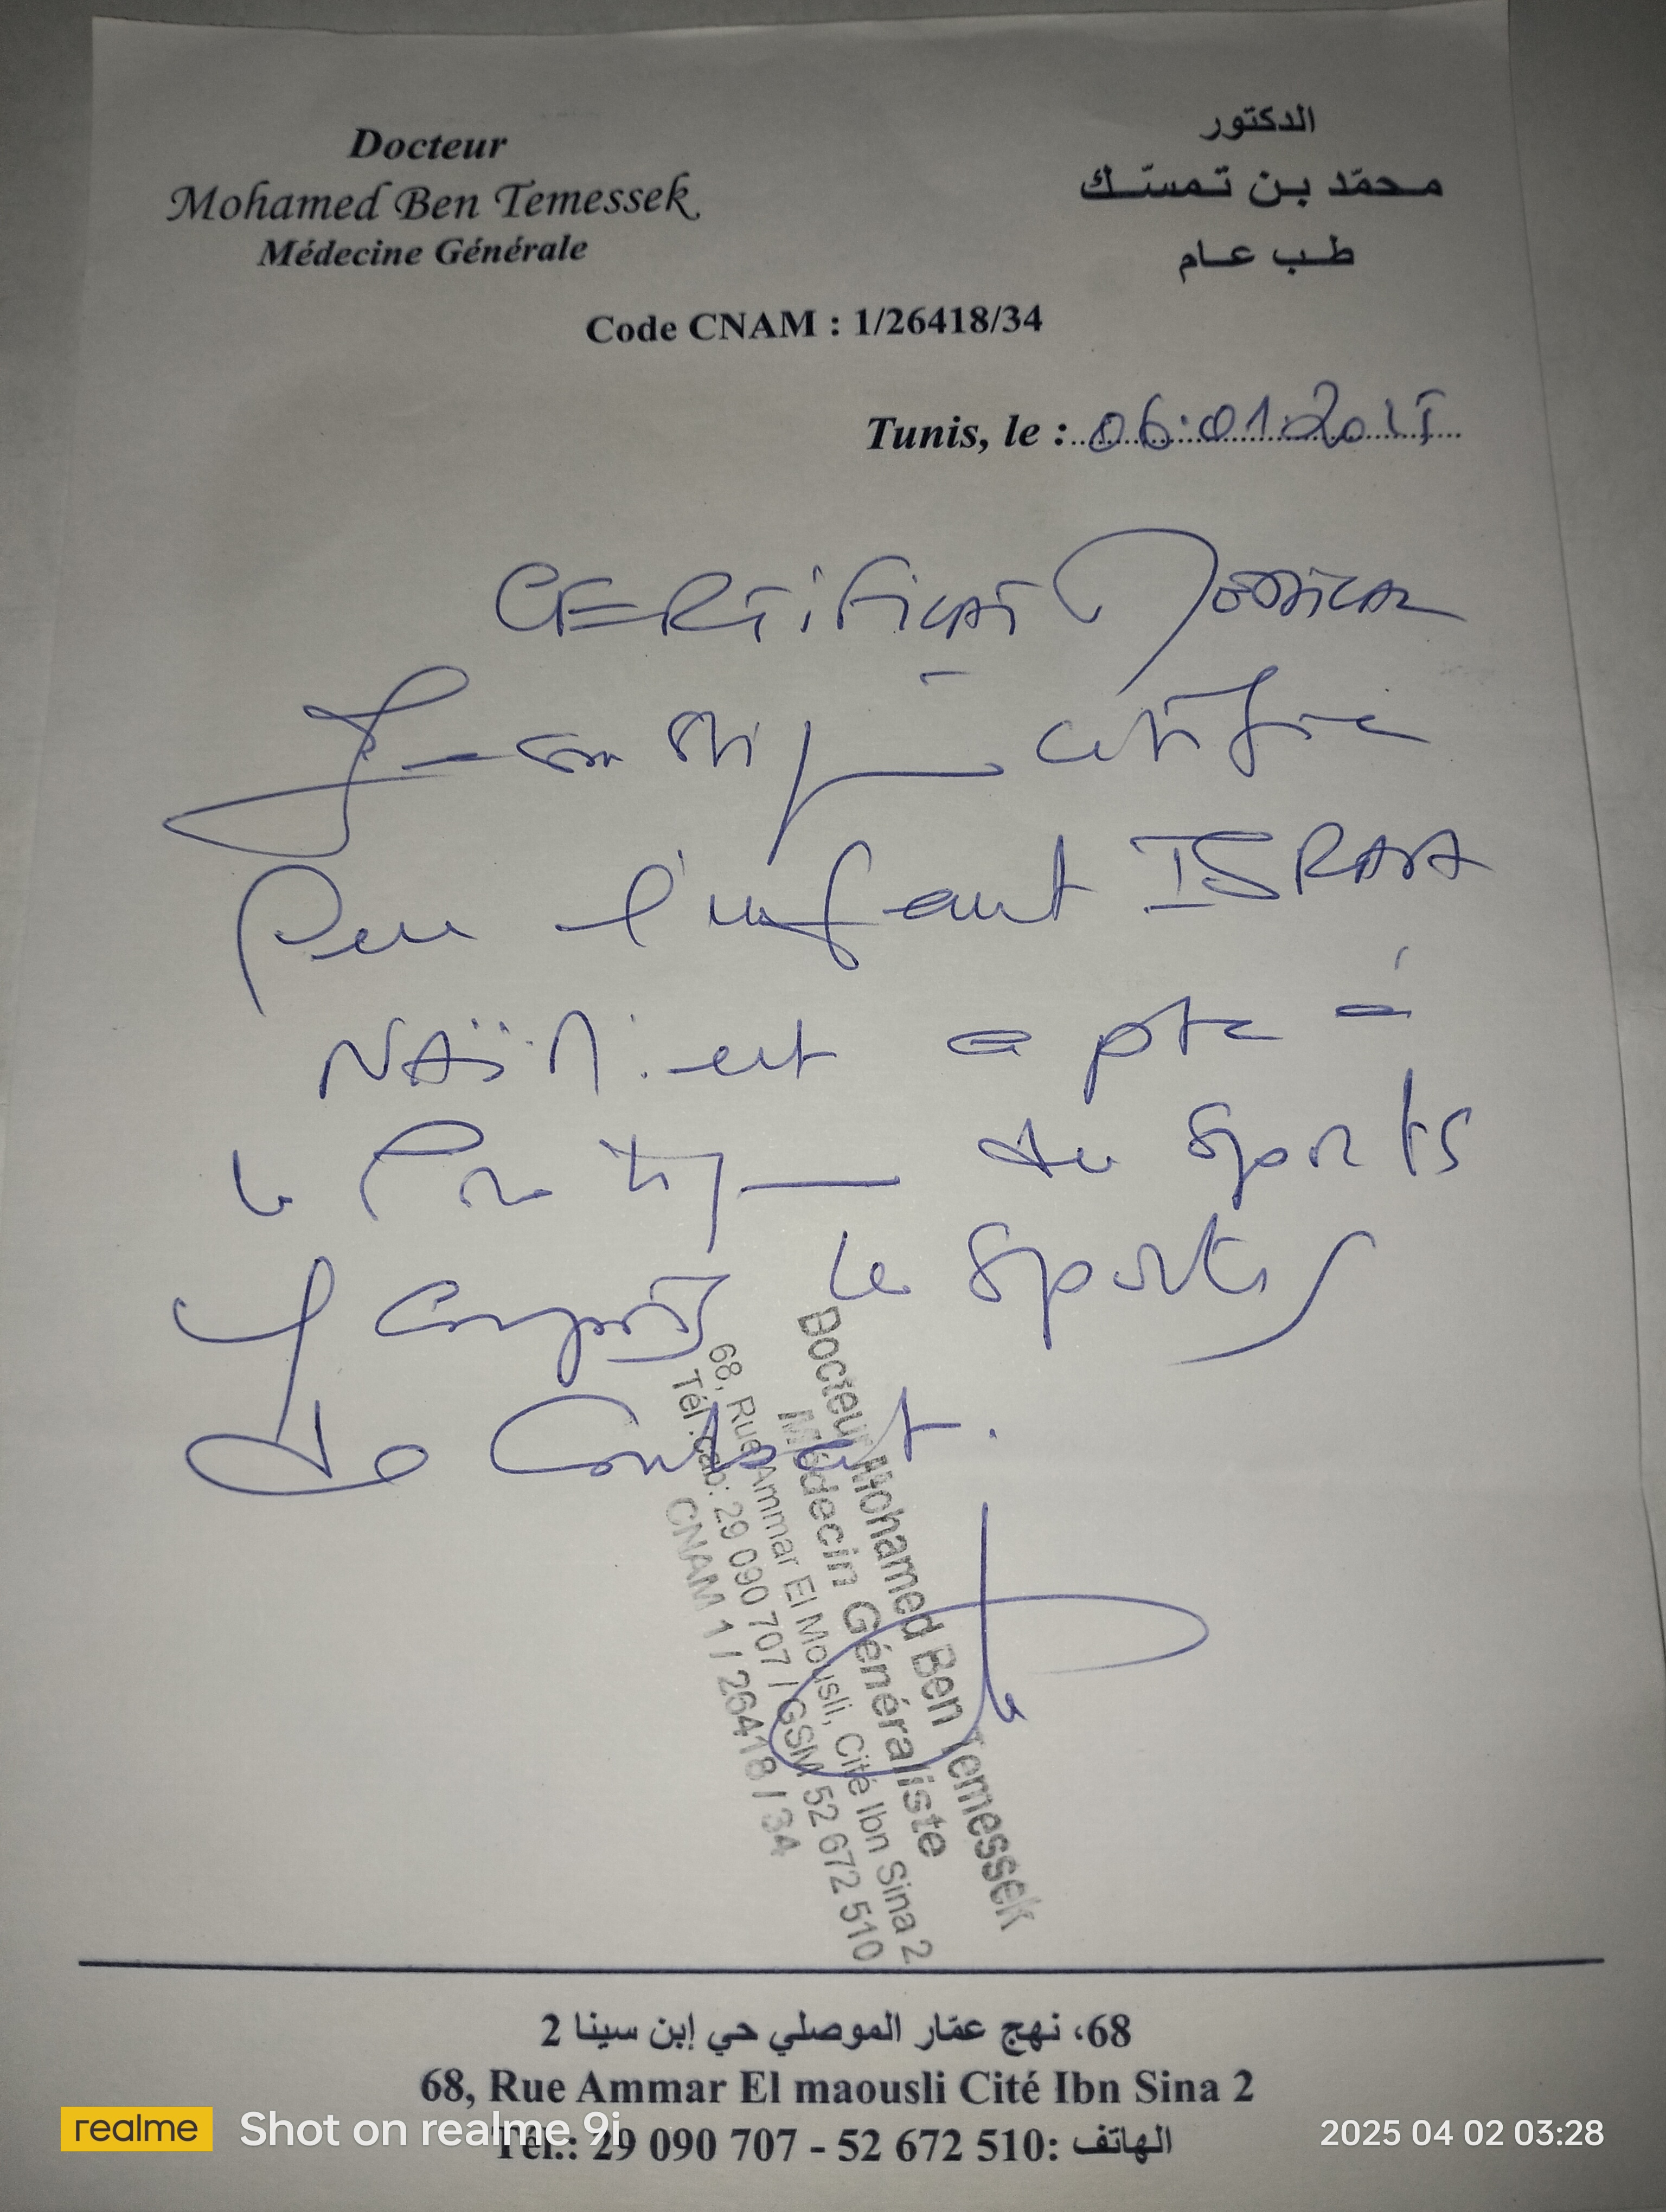 Docteur
Mohamed Ben Temessek
Médecine Générale
الدكتور
محمّد بن تمسّك
طب عام
Code CNAM : 1/26418/34
Tunis, le : 06.01.2025
CERTIFICAT MEDICAL
Je soussigné certifie
que l'enfant ISRAA
NAÏM. est apte à
la pratique des sports
y compris les sports
de combat.
Docteur Mohamed Ben Temessek
Médecin Généraliste
68, Rue Ammar El Mousli, Cité Ibn Sina 2
Tél cab: 29 090 707 / GSM 52 672 510
CNAM 1 / 26418 / 34
68، نهج عمّار الموصلي حي إبن سينا 2
68, Rue Ammar El maousli Cité Ibn Sina 2
Tél.: 29 090 707 - 52 672 510 :الهاتف
realme Shot on realme 9i
2025 04 02 03:28